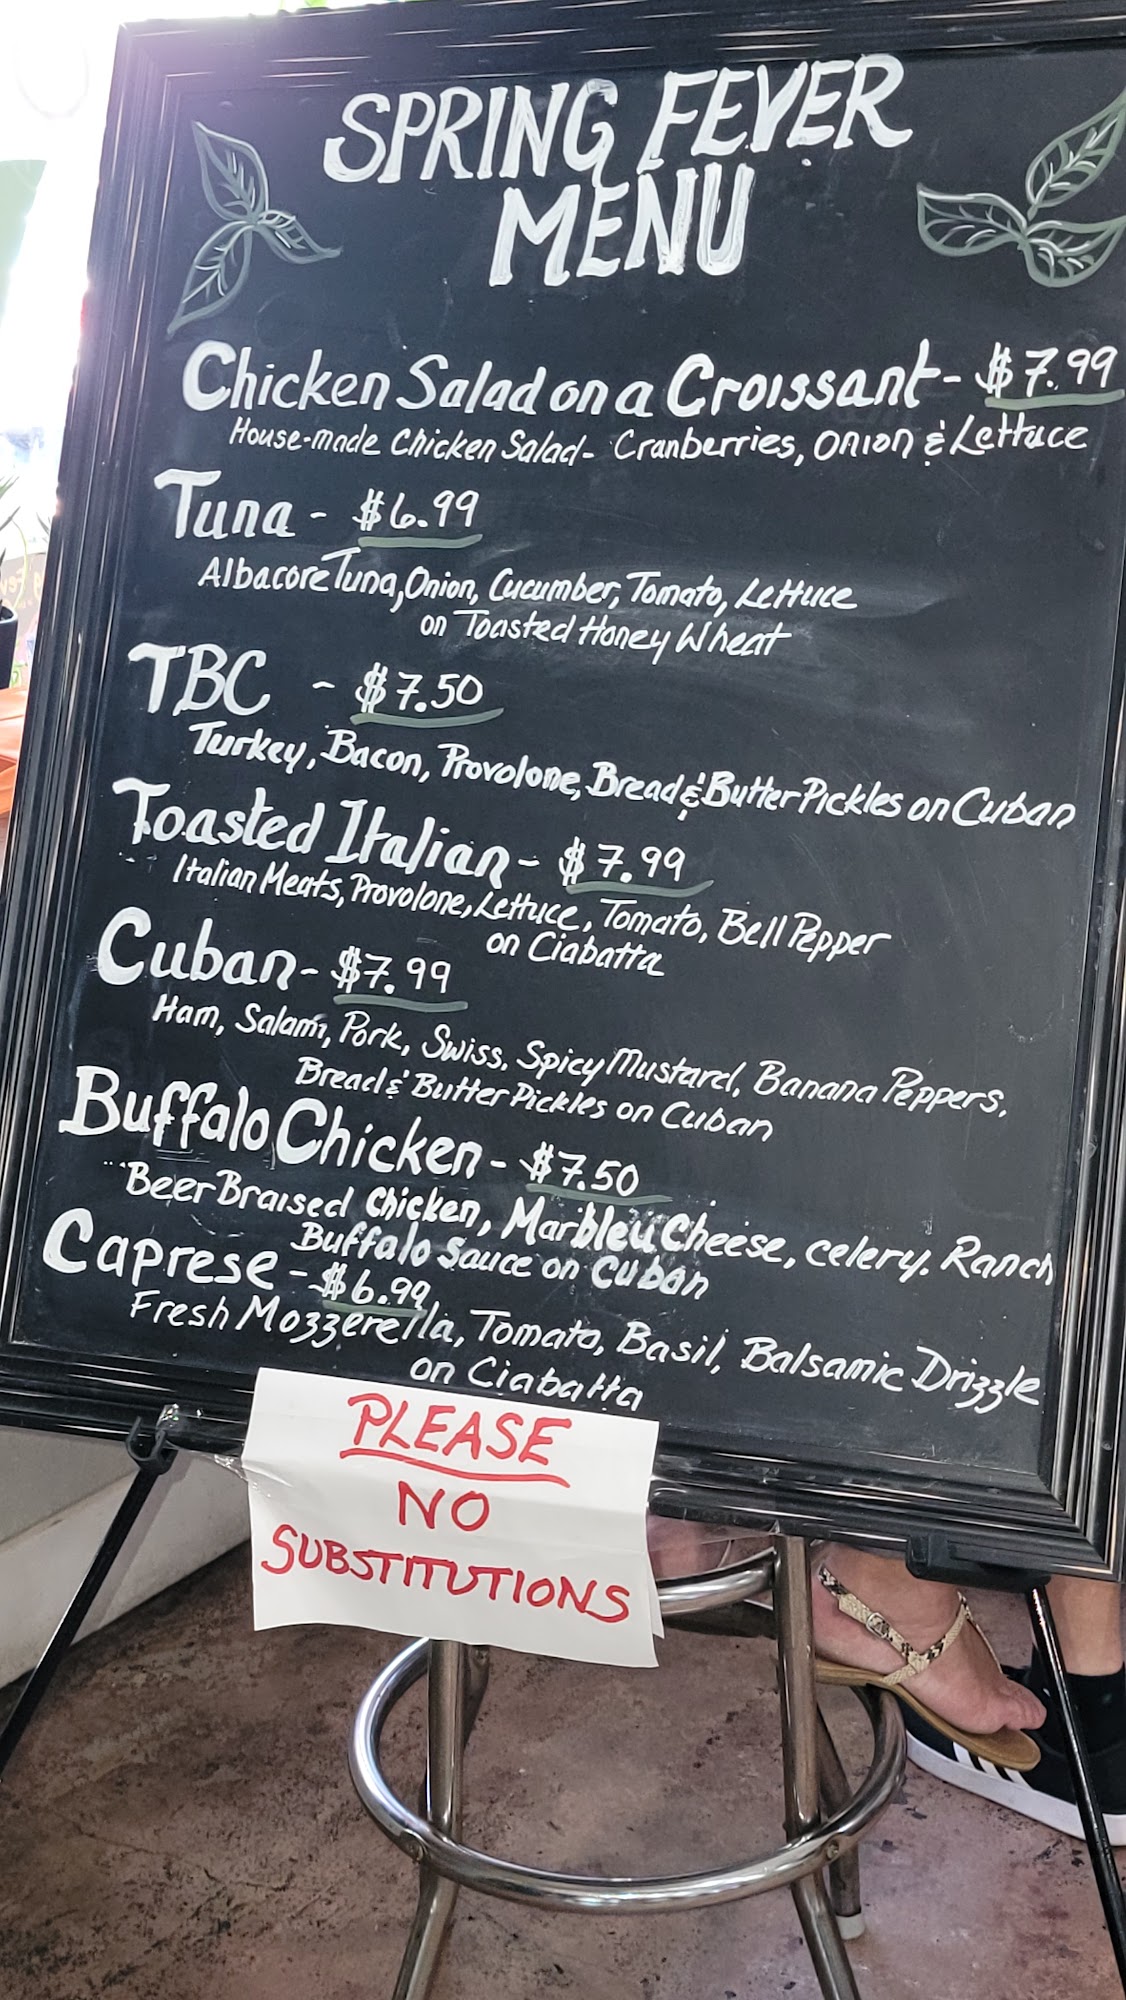 SPRING FEVER
MENU
Chicken Salad on a Croissant - $7.99
House-made Chicken Salad - Cranberries, Onion & Lettuce
Tuna - $6.99
Albacore Tuna, Onion, Cucumber, Tomato, Lettuce
on Toasted Honey Wheat
TBC - $7.50
Turkey, Bacon, Provolone, Bread & Butter Pickles on Cuban
Toasted Italian - $7.99
Italian Meats, Provolone, Lettuce, Tomato, Bell Pepper
on Ciabatta
Cuban - $7.99
Ham, Salami, Pork, Swiss, Spicy Mustard, Banana Peppers,
Bread & Butter Pickles on Cuban
Buffalo Chicken - $7.50
Beer Braised Chicken, Marbleu Cheese, celery, Ranch
Buffalo Sauce on Cuban
Caprese - $6.99
Fresh Mozzerella, Tomato, Basil, Balsamic Drizzle
on Ciabatta
PLEASE
NO
SUBSTITUTIONS